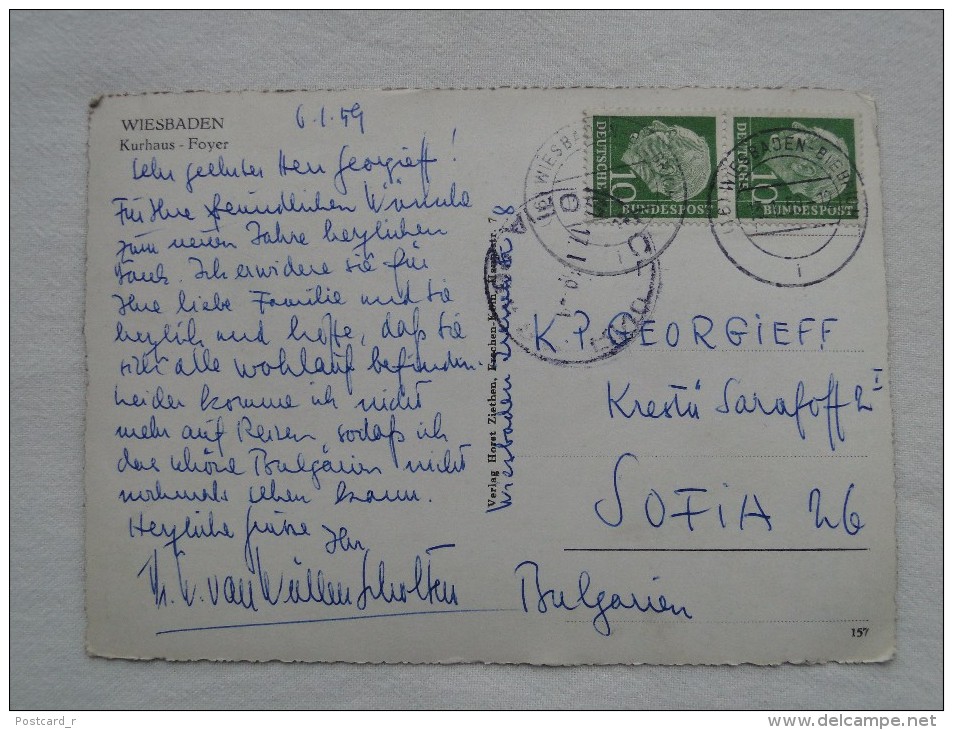 WIESBADEN
Kurhaus - Foyer
6.1.59
Sehr geehrter Herr Georgieff!
Für Ihre freundlichen Wünsche
zum neuen Jahre herzlichen
Dank. Ich erwidere sie für
Ihre liebe Familie und Sie
herzlich und hoffe, daß Sie
sich alle wohlauf befinden.
Leider komme ich nicht
mehr auf Reisen, sodaß ich
das schöne Bulgarien nicht
nochmals sehen kann.
Herzliche Grüße Ihr
van Wüllen Scholten
Verlag Horst Ziethen, Frechen-Köln, 7
Wiesbaden 8
DEUTSCHE
BUNDESPOST
10
DEUTSCHE
BUNDESPOST
10
(16) WIESBADEN-BIEB
K. P. GEORGIEFF
Krestü Sarafoff 2 I
SOFIA 26
Bulgarien
157
Postcard_r
www.delcampe.net